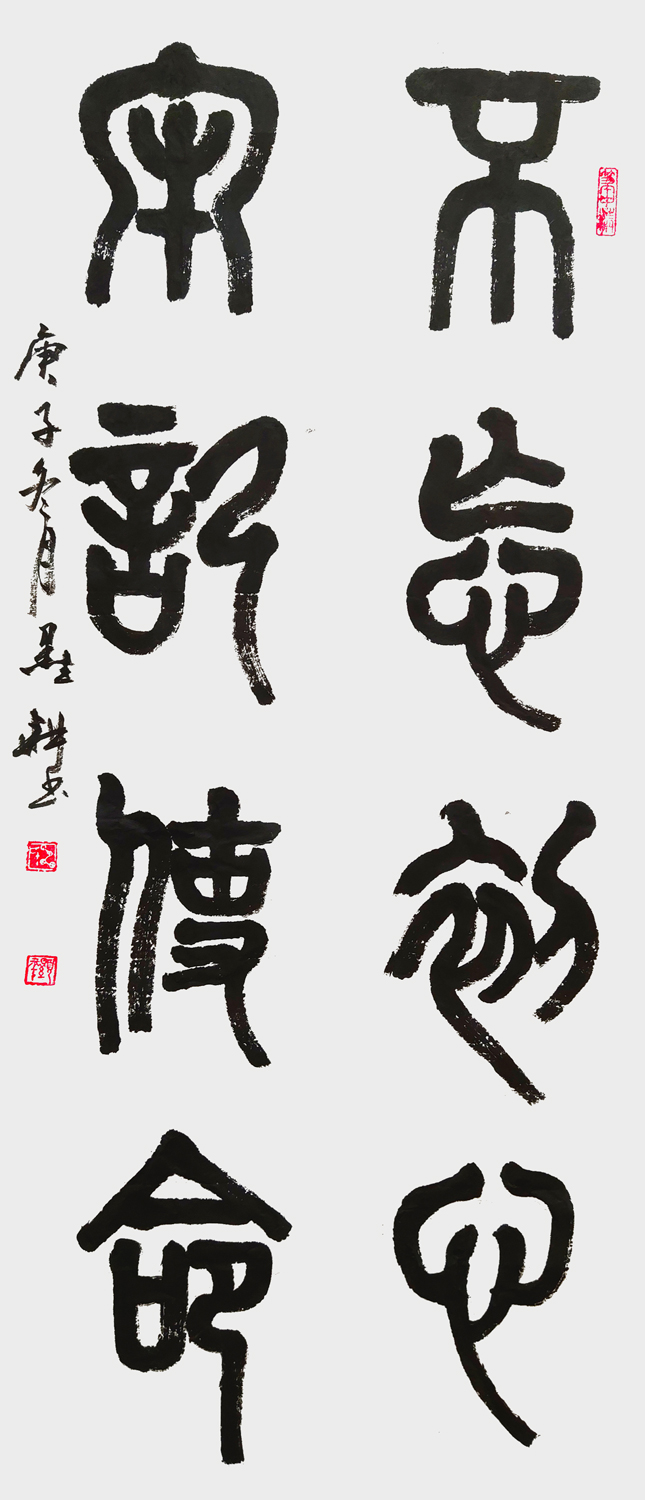 不忘初心
牢記使命
庚子冬月墨耕书